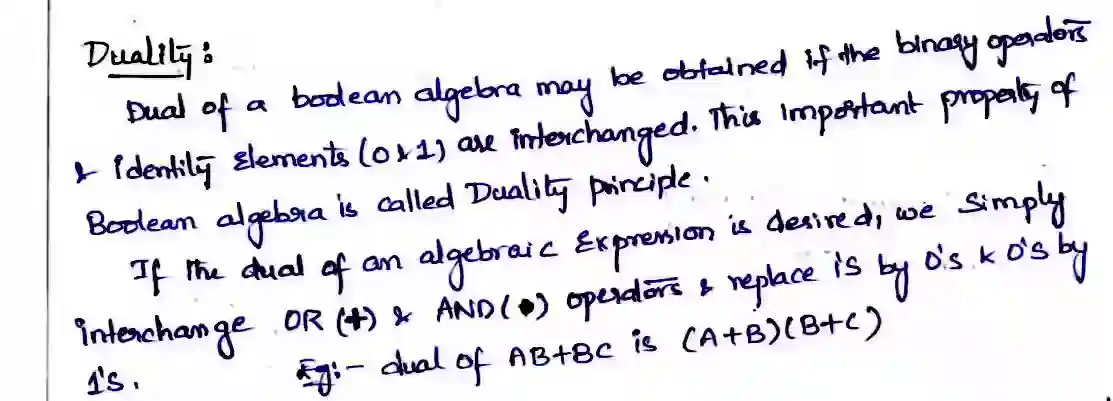 Duality:
Dual of a boolean algebra may be obtained if the binary operators
& identity Elements (0 & 1) are interchanged. This important property of
Boolean algebra is called Duality principle.
If the dual of an algebraic Expression is desired, we simply
interchange OR (+) & AND (•) operators & replace 1's by 0's & 0's by
1's.
Eg:- dual of AB+BC is (A+B)(B+C)